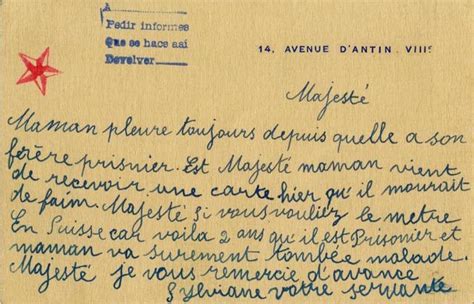 A
Pedir informes
Que se haga así
Devolver
14, AVENUE D'ANTIN. VIIIe
Majesté
Maman pleure toujours depuis quelle a son
frère prisnier. Est Majesté maman vient
de recevoir une carte hier qu'il mourait
de faim. Majesté si vous vouliez le metre
En Suisse car voila 2 ans qu'il est Prisonier et
maman va surement tombée malade.
Majesté je vous remercie d'avance
Sylviane votre servante